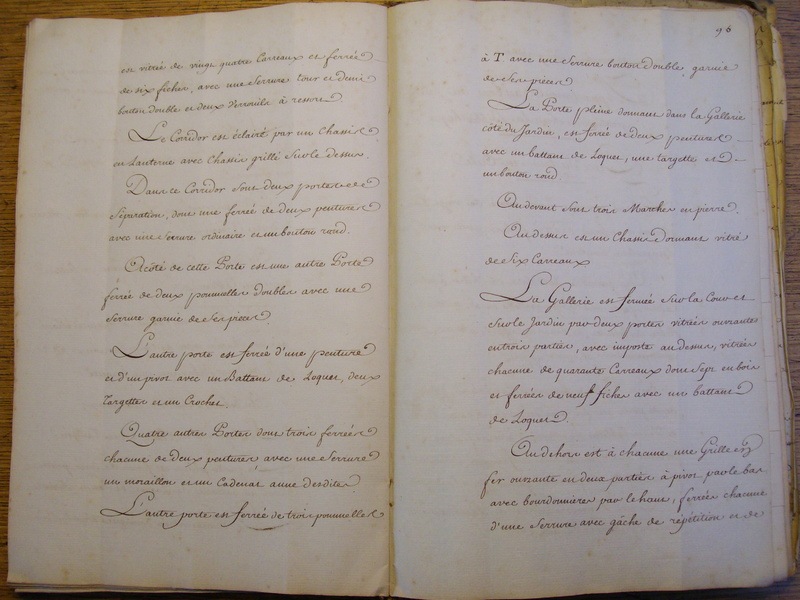 est vitrée de vingt quatre Carreaux et ferrée
de six fiches, avec une Serrure tour et demi
bouton double et deux Verrouils à ressort
Le Corridor est éclairé par un Chassis
en Lanterne avec Chassis grillé Sur le dessus.
Dans ce Corridor sont deux portes de
Séparation, dont une ferrée de deux pentures
avec une Serrure ordinaire et un bouton rond.
A côté de cette Porte est une autre Porte
ferrée de deux poumelles doubles avec une
Serrure garnie de Ses pieces
L'autre porte est ferrée d'une penture
et d'un pivot avec un Battant de Loquet, deux
Targettes et un Crochet.
Quatre autres Portes dont trois ferrées
chacune de deux pentures avec une Serrure
un moraillon et un Cadenat a une desdites
L'autre porte est ferrée de trois poumelles
96
à T. avec une Serrure bouton double, garnie
de Ses pieces
La Porte pleine donnant dans la Gallerie
côté du Jardin, est ferrée de deux pentures
avec un battant de Loquet, une targette et
un bouton rond.
Au devant sont trois Marches en pierre.
Au dessus est un Chassis dormant vitré
de Six Carreaux
La Gallerie est fermée Sur la Cour et
Sur le Jardin par deux portes vitrées ouvrantes
en trois parties, avec imposte au dessus, vitrées
chacune de quarante Carreaux dont Sept en bois
et ferrées de neuf fiches avec un battant
de Loquet.
Au dehors est à chacune une Grille en
fer ouvrante en deux parties à pivot par le bas
avec bourdonnieres par le haut, ferrées chacune
d'une Serrure avec gâche de répétition et de